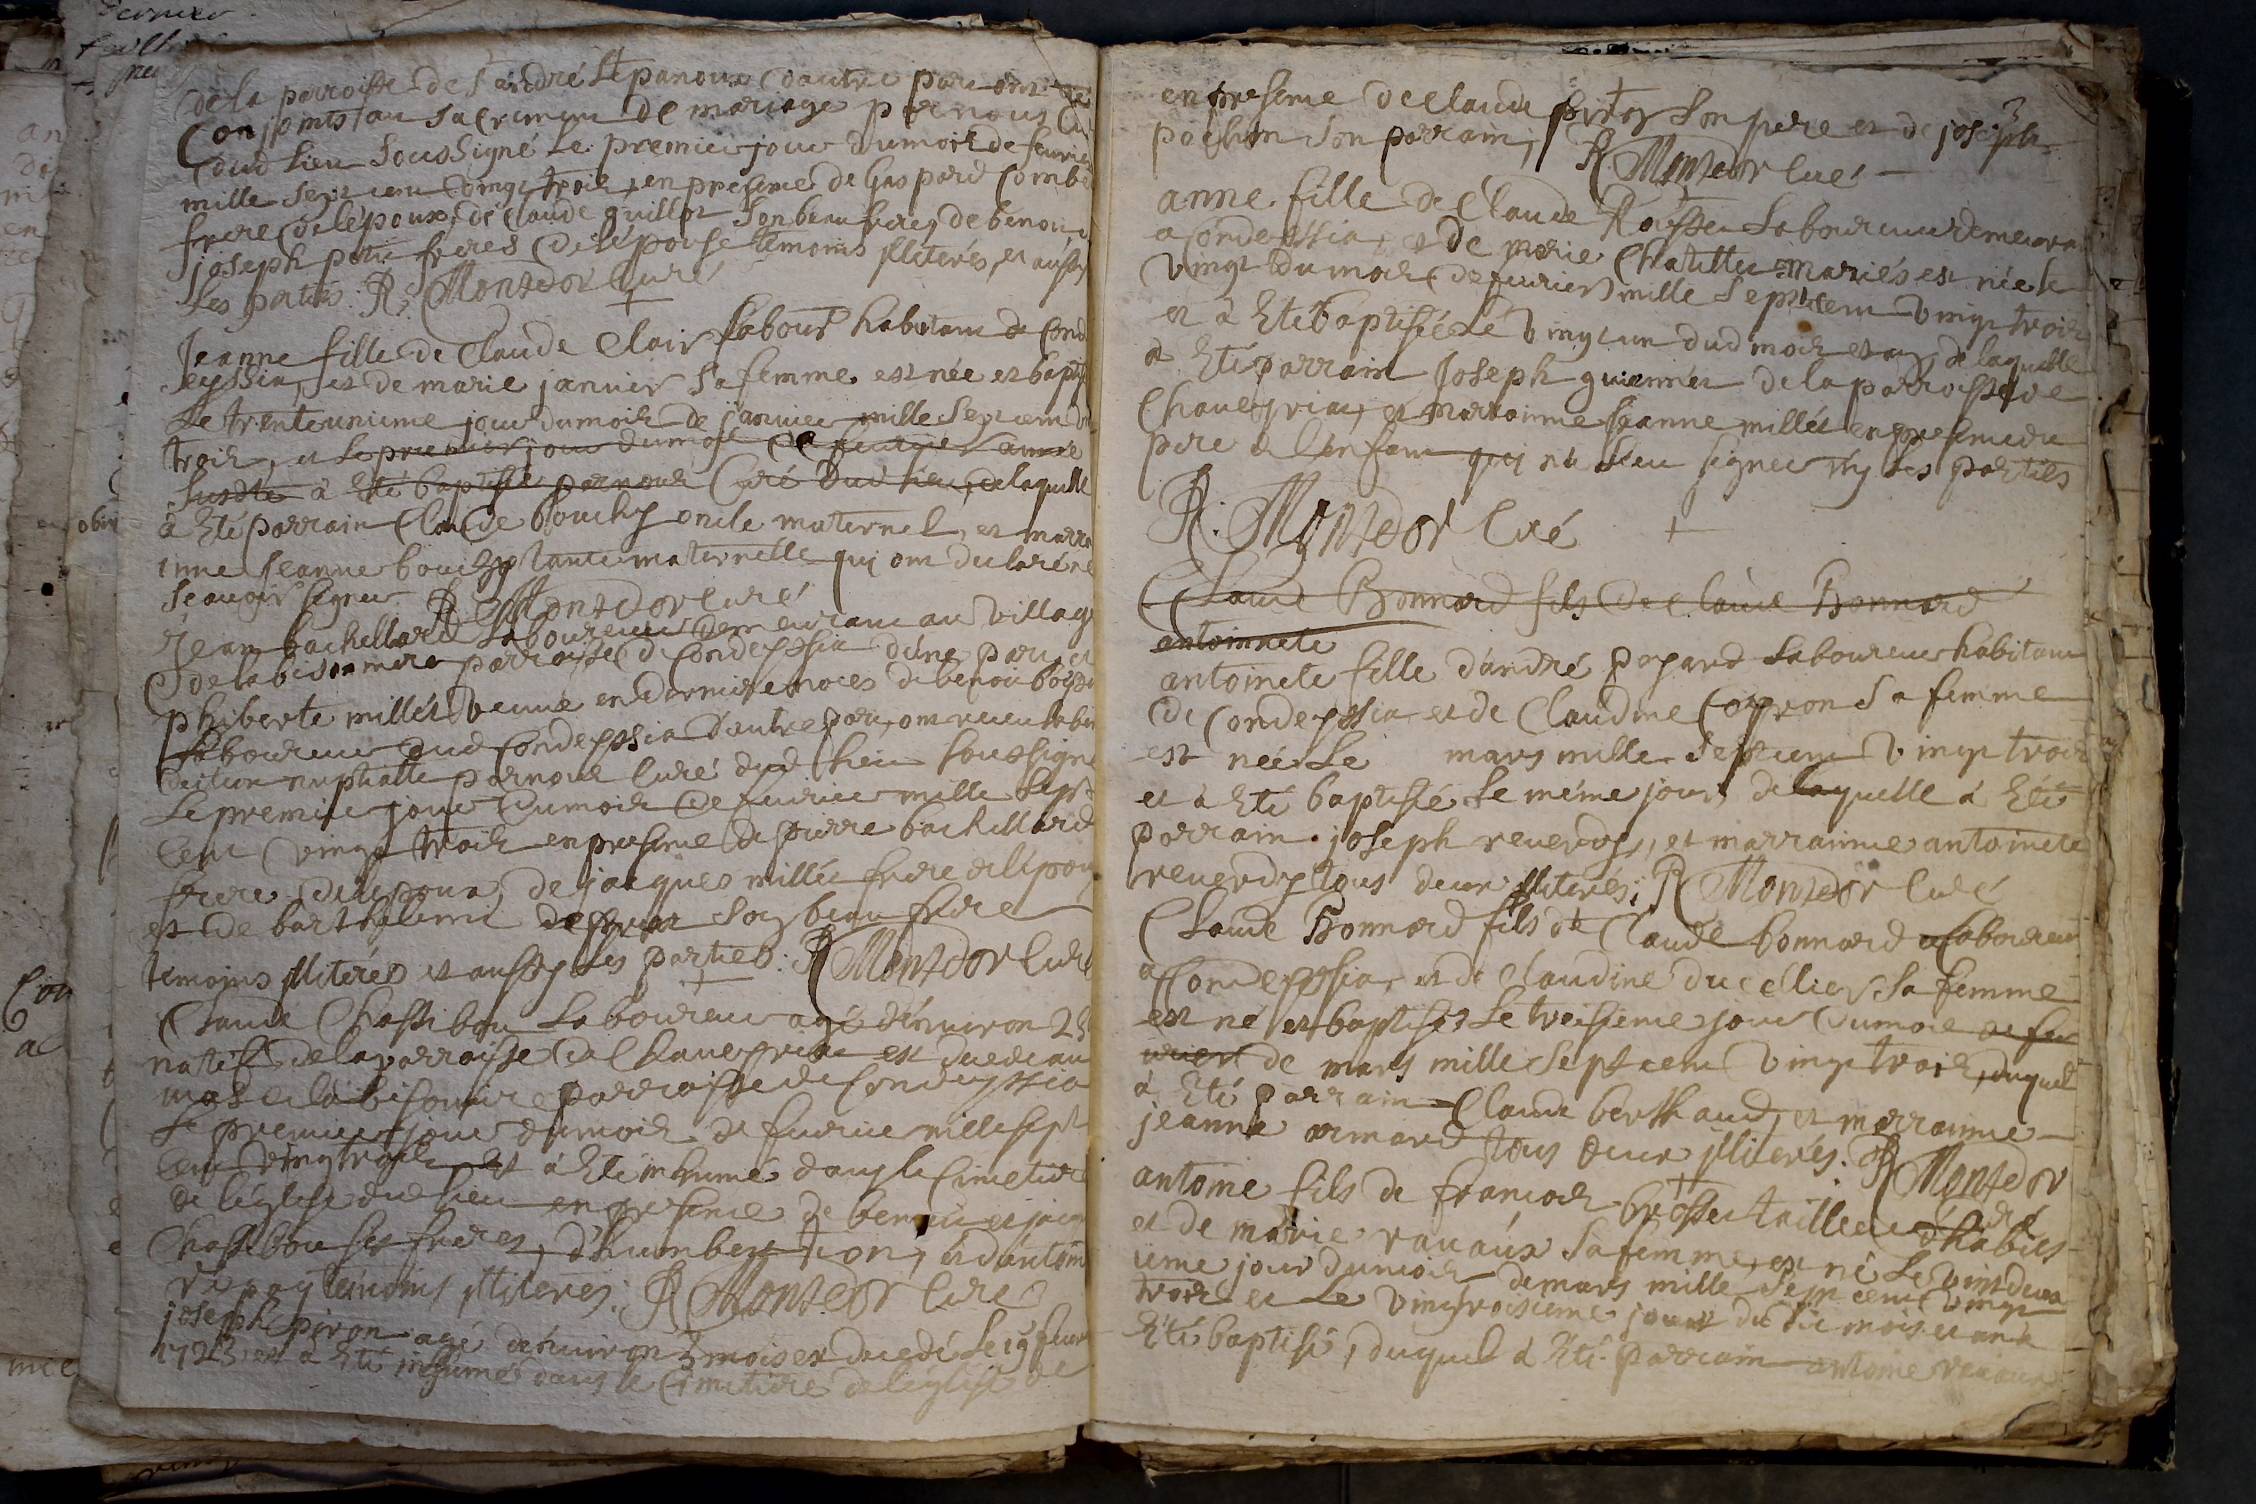 de la parroisse de S andré Le panoux d'autre part ont été
Conjoints au Sacrement de mariage par nous Cu
dud lieu Soussigné Le premier jour du mois de feurier
mille sept cent vingt trois, en presence de Gaspard Combe
frere de lépoux, de Claude guillot Son beau frere, de benoit
joseph petit freres de lépouse temoins illiterés, et aussy
Les parties. R. Montedor Curé
Jeanne fille de Claude Clair labour habitant de Cond
eyssia, et de marie janvier Sa femme est née et baptis
Le trente unieme jour du mois de januier mille Sept cent
trois, et Le premier jour du mois de feurier année
Susdte à Eté baptisée par nous Curé dud lieu, de laquelle
à Eté parrain Claude bouchy oncle maternel, et marra
inne jeanne bouchy tante maternelle qui ont declaré ne
Scauoir signer R. Montedor Curé
Jean bachellard Laboureur demeurant au village
de la bisonnere parroisse de Condeyssia d'une part et
phiberte millet veuue en derniere noces de benoit
Laboureur dud Condeyssia d'autre part, ont receu La bene
diction nuptialle par nous Curé dud lieu Soussigné
Le premier jour du mois de feurier mille Sept
Cent vingt trois en presence de pierre bachellard
frere de lépoux, de jacques millet frere de lépou
et de barthelemi Son beau frere
temoins illiterés et aussy Les parties. R Montedor Curé
Claude Chassibou Laboureur agé d'enuiron 25
natif de la parroisse de Chaueyria est decedé au
mas de la bisonnire parroisse de Condeyssia
Le premier jour du mois de feurier mille sept
Cent vingt trois et à Eté inhumé dans le Cimetiere
de l'église dud lieu en presence de benoit et jacq
Chassibou ses freres, d'humbert, et d'antoin
temoins illiteres. R Montedor Curé
joseph piron agé d'enuiron 3 mois est decedé Le 19 feur
1723 et à Eté inhumé dans le Cimetiere de l'église de
en presence de Claude Son pere et de joseph
pochon Son parrain, R. Montedor Curé
anne fille de Claude Laboureur demeura
a Condeyssia, et de marie Chatillier mariés est née le
vingt du mois de feurier mille Sept cent vingt trois
et à Eté baptisée Le vingt un dud mois et an, de laquelle
à Eté parrain Joseph guiennet de la parroisse de
Chaueyria, et marrainne jeanne millet en presence du
pere de l'enfant qui n'a sceu signer n'y Les parties
R. Montedor Curé
Claude Bonnard fils de Claude Bonnard
antoinnete
antoinete fille d'andré pagand Laboureur habitant
de Condeyssia et de Claudine Coyron Sa femme
est née Le mars mille Sept cent vingt trois
et à Eté baptisé Le même jour, de laquelle à Eté
parrain joseph reuerdy, et marrainne antoinete
reuerdy tous deux illiterés, R Montedor Curé
Claude Bonnard fils de Claude bonnard Laboureur
à Condeyssia, et de Claudine ducellier Sa femme
est né et baptisé Le troisieme jour du mois de feu
urier de mars mille Sept cent vingt trois, duquel
à Eté parrain Claude berthaud, et marrainne
jeanne armand tous deux illiterés. R Montedor
Curé
antoine fils de francois brosset tailleur d'habits
et de marie rauaux Sa femme, est né Le vint deux
ieme jour du mois de mars mille Sept cent vingt
trois et Le vingtroisieme jour du dit mois et an a
Eté baptisé, duquel à Eté parrain antoine rauaux